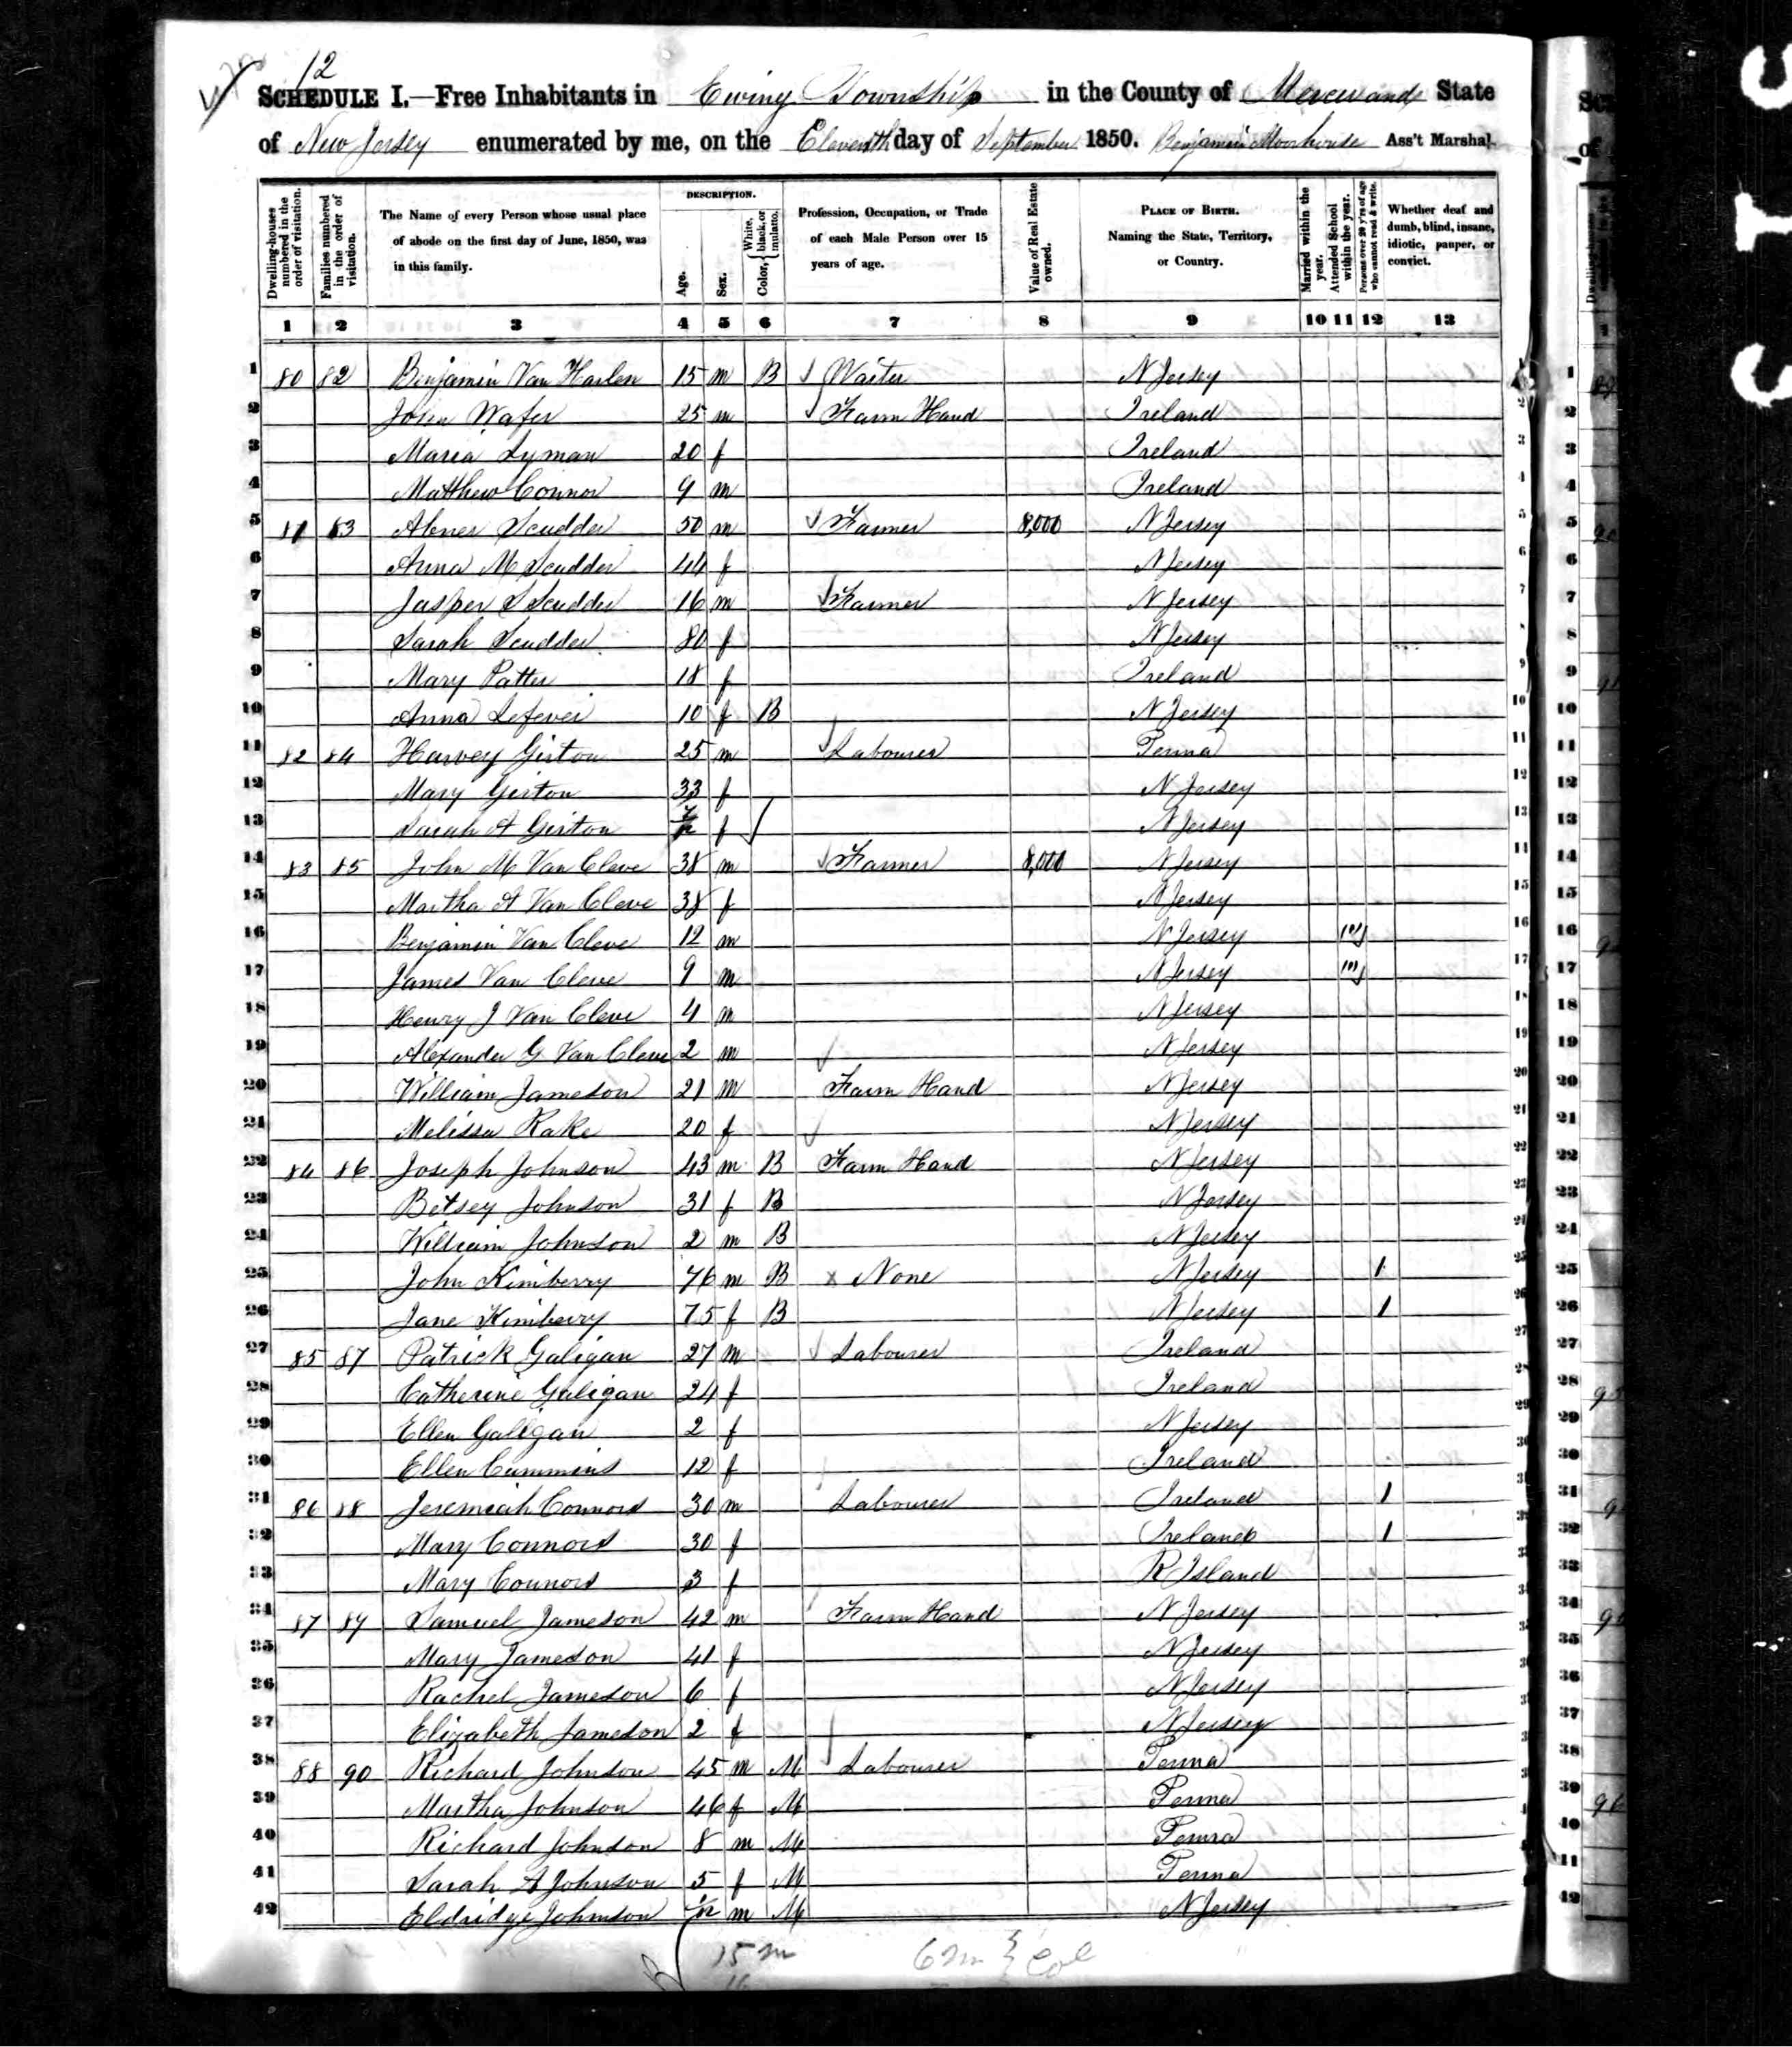 12
SCHEDULE I.—Free Inhabitants in Ewing Township in the County of Mercer and State
of New Jersey enumerated by me, on the Eleventh day of September 1850. Benjamin Moorhouse Ass't Marshal.
Dwelling-houses numbered in the order of visitation.
Families numbered in the order of visitation.
The Name of every Person whose usual place of abode on the first day of June, 1850, was in this family.
DESCRIPTION.
Age.
Sex.
Color, White, black, or mulatto.
Profession, Occupation, or Trade of each Male Person over 15 years of age.
Value of Real Estate owned.
PLACE OF BIRTH. Naming the State, Territory, or Country.
Married within the year.
Attended School within the year.
Persons over 20 y'rs of age who cannot read & write.
Whether deaf and dumb, blind, insane, idiotic, pauper, or convict.
1 2 3 4 5 6 7 8 9 10 11 12 13
1 80 82 Benjamin Van Harlen 15 m B Waiter N Jersey 1
2 John Wafer 25 m Farm Hand Ireland 2
3 Maria Lyman 20 f Ireland 3
4 Matthew Connor 9 m Ireland 4
5 81 83 Abner Scudder 50 m Farmer 8,000 N Jersey 5
6 Anna M Scudder 44 f N Jersey 6
7 Jasper S Scudder 16 m Farmer N Jersey 7
8 Sarah Scudder 80 f N Jersey 8
9 Mary Patter 18 f Ireland 9
10 Anna Lefever 10 f B N Jersey 10
11 82 84 Harvey Girton 25 m Labourer Penna 11
12 Mary Girton 33 f N Jersey 12
13 Sarah A Girton f N Jersey 13
14 83 85 John M Van Cleve 38 m Farmer 8,000 N Jersey 14
15 Martha A Van Cleve 38 f N Jersey 15
16 Benjamin Van Cleve 12 m N Jersey 16
17 James Van Cleve 9 m N Jersey 17
18 Henry J Van Cleve 4 m N Jersey 18
19 Alexander G Van Cleve 2 m N Jersey 19
20 William Jameson 21 m Farm Hand N Jersey 20
21 Melissa Rake 20 f N Jersey 21
22 84 86 Joseph Johnson 43 m B Farm Hand N Jersey 22
23 Betsey Johnson 31 f B N Jersey 23
24 William Johnson 2 m B N Jersey 24
25 John Kinberry 76 m B x None N Jersey 1 25
26 Jane Kinberry 75 f B N Jersey 1 26
27 85 87 Patrick Galigan 27 m Labourer Ireland 27
28 Catherine Galigan 24 f Ireland 28
29 Ellen Galigan 2 f N Jersey 29
30 Ellen Cummins 12 f Ireland 30
31 86 88 Jeremiah Connors 30 m Labourer Ireland 1 31
32 Mary Connors 30 f Ireland 1 32
33 Mary Connors 3 f R Island 33
34 87 89 Samuel Jameson 42 m Farm Hand N Jersey 34
35 Mary Jameson 41 f N Jersey 35
36 Rachel Jameson 6 f N Jersey 36
37 Elizabeth Jameson 2 f N Jersey 37
38 88 90 Richard Johnson 45 m M Labourer Penna 38
39 Martha Johnson 46 f M Penna 39
40 Richard Johnson 8 m M Penna 40
41 Sarah A Johnson 5 f M Penna 41
42 Eldridge Johnson m M N Jersey 42
15 m 6 m } Col